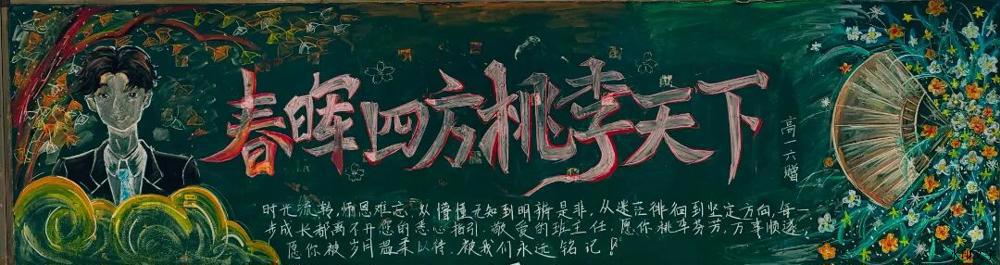 春晖四方桃李天下
高一六赠
时光流转,师恩难忘,从懵懂无知到明辨是非,从迷茫徘徊到坚定方向,每一
步成长都离不开您的悉心指引。敬爱的班主任,愿你桃李芬芳,万事顺遂,
愿你被岁月温柔以待,被我们永远铭记!